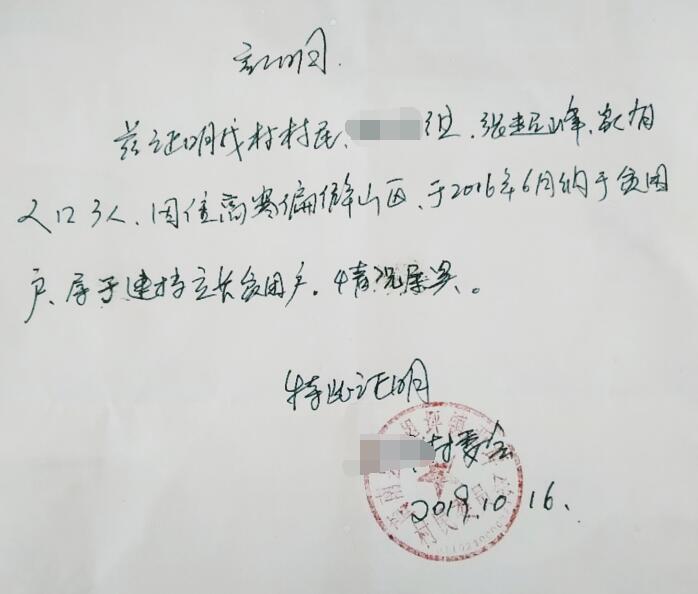 证明
兹证明我村村民、组、张超峰、家有
人口3人、因住高寒偏僻山区、于2016年6月纳于贫困
户、属于建档立卡贫困户。情况属实。
特此证明
村委会
2019.10.16.